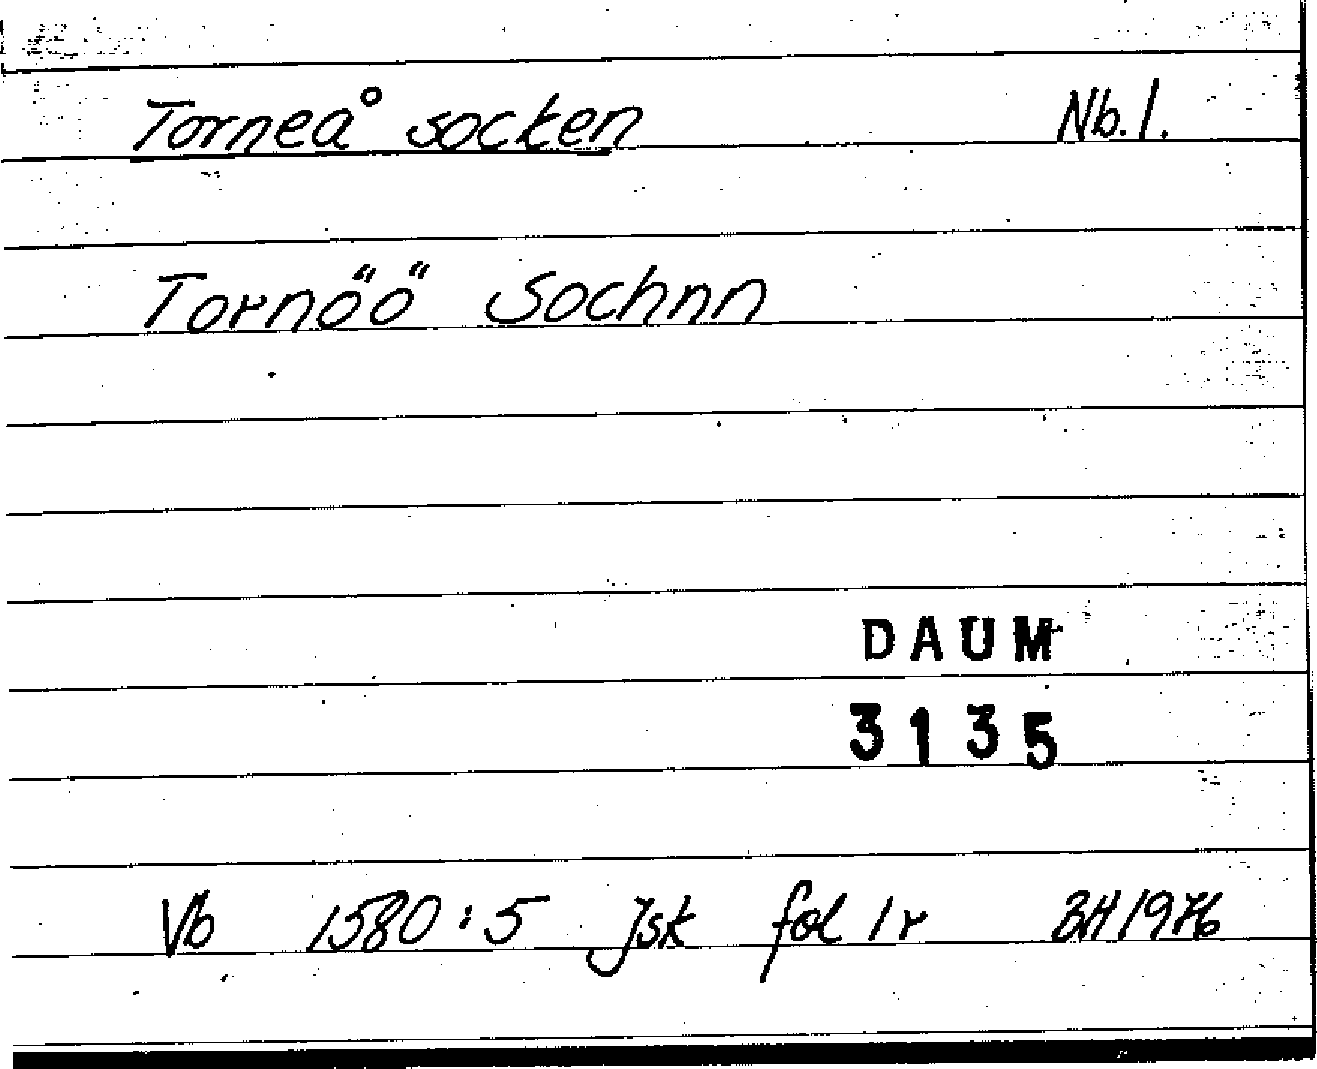 Torneå socken Nb.l.
Tornöö Sochnn
DAUM
3135
Vb 1580:5 Jsk fol 1r BH 1976